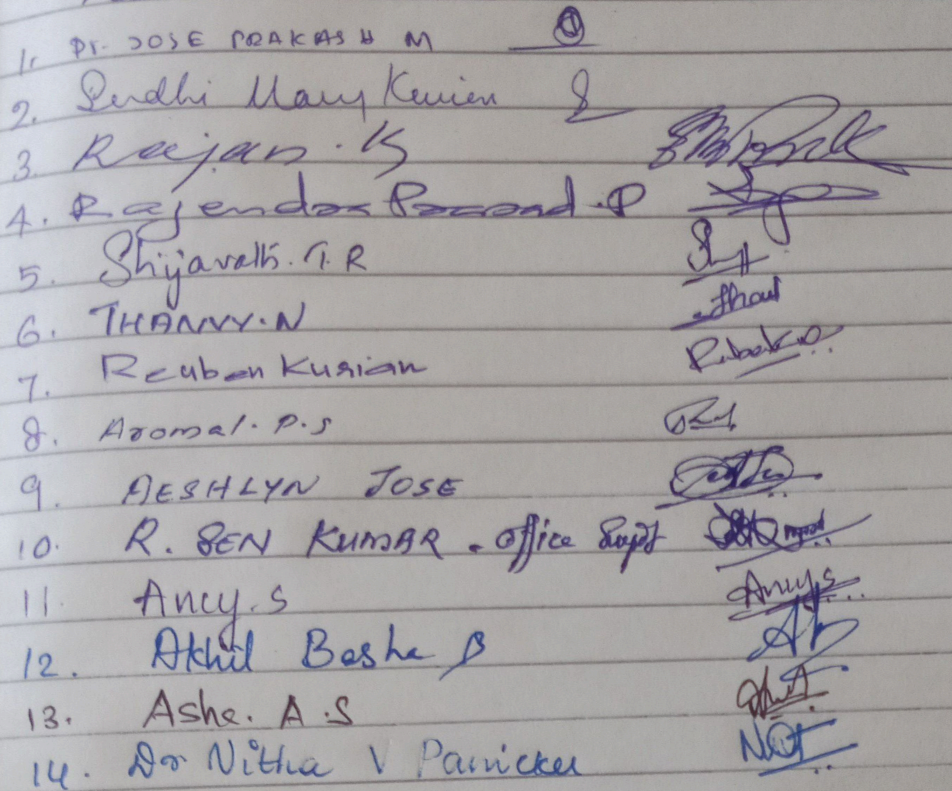 1. Dr. JOSE PRAKASH M
2. Mary Kurien
3. Rajan. K
4. Rajendra Prasad. P
5. Shijavath. T. R
6. THANVY. N
7. Reuben Kurian
8. Aromal. P. S
9. AESHLYN JOSE
10. R. SEN KUMAR. Office Supdt
11. Ancy. S Ancy. S
12. Akhil Bashe B
13. Asha. A. S
14. Dr Nitha V Panicker